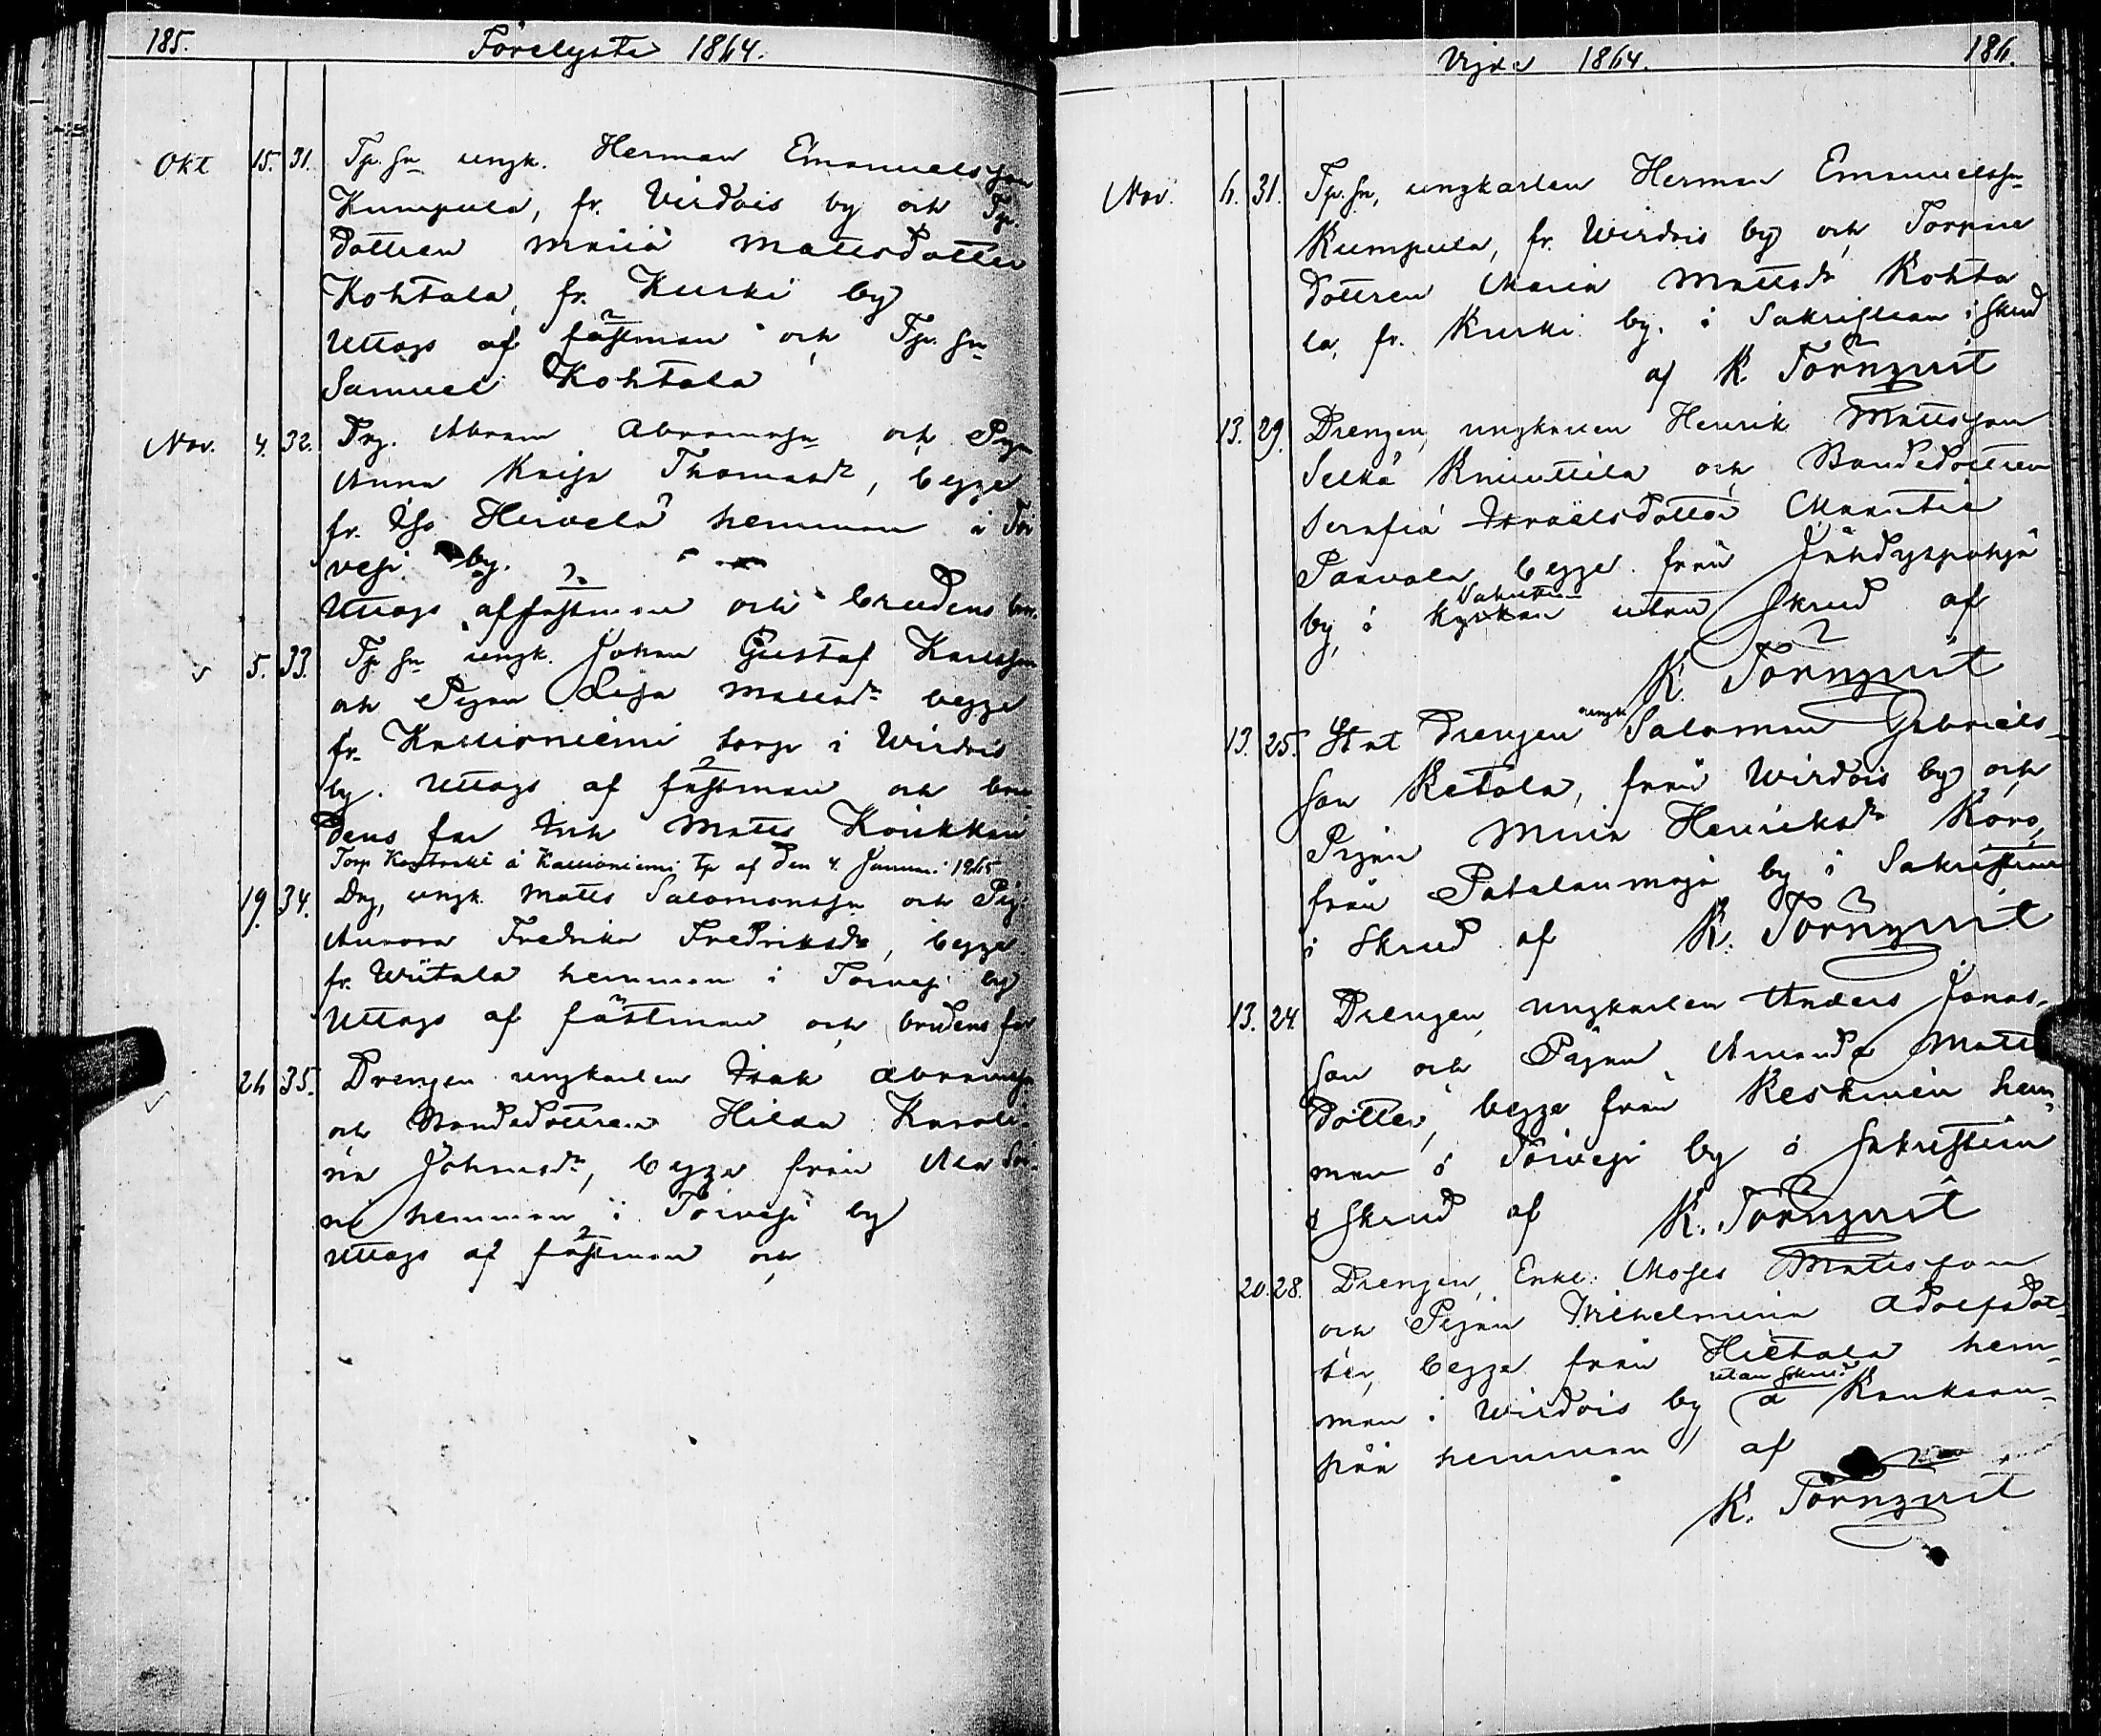 185. Förelyste 1864.
Okt 15. 31. Tp. sn ungk. Herman Emanuelsson
Kumpula, fr. Virdois by och Tp.
dottren Maria Mattsdotter
Kohtala, fr. Kurki by
Uttogs af fästman och Tp. sn
Samuel Kohtala
Nov. 4. 32. Drg. Abram Abramssn och Pig.
Anna Kaisa Thomasdr, begge
fr. Iso Hirvelä hemman i Toi
vesi by.
Uttogs af fästman och brudens bror.
5. 33. Tp sn ungk. Johan Gustaf Karlsson
och Pigan Lisa Mattsdr begge
fr. Kallioniemi torp i Wirdois
by. Uttogs af fästman och bru
dens far Matts Koukkari
Torp Kontrakt å Kallioniemi Tp af den 4. Januari 1865
19. 34. Drg, ungk. Matts Salomonssn och Pig.
Aurora Fredrika Fredriksdr, begge
fr. Wiitala hemman i Toivesi by
Uttogs af fästman och brudens far
26 35. Drengen ungkarlen Isak Abramssn
och Bondedottren Hilda Karoli-
na Johansdr, begge från Ala Soi-
ni hemman i Toivesi by
Uttogs af fästman och
Vigde 1864. 186.
Nov. 6. 31. Tp. sn, ungkarlen Herman Emanuelssn
Kumpula, fr. Wirdois by och Torpare
dottren Maria Mattsdr Kohta
la, fr. Kurki by. i Sakristian i skrud
af K. Törnqvist
13. 29. Drengen, ungkarlen Henrik Mattsson
Selkä Knuuttila och Bondedottren
Serafia Israelsdotter Manntie
Paavola, begge från Jähdyspohja
by, i Sakristian kyrkan utan skrud af
K. Törnqvist
13. 25. St.nt Drengen ungk Salomon Gabriels-
son Ketola, från Wirdois by och
Pigan Maria Henriksdr Koro,
från Patalanmaja by i Sakristian
i Skrud af K. Törnqvist
13. 24. Drengen, ungkarlen Anders Jonas-
son och Pigan Amanda Matts
dotter, begge från Keskinen hem-
man i Toivesi by i Sakristian
i Skrud af K. Törnqvist
20. 28. Drengen, Enkl. Moses Mattsson
och Pigan Wilhelmina Adolfsdot-
ter, begge från Hietala hem-
man i Wirdois by utan skrud å Kankaan-
pää hemman af
K. Törnqvist